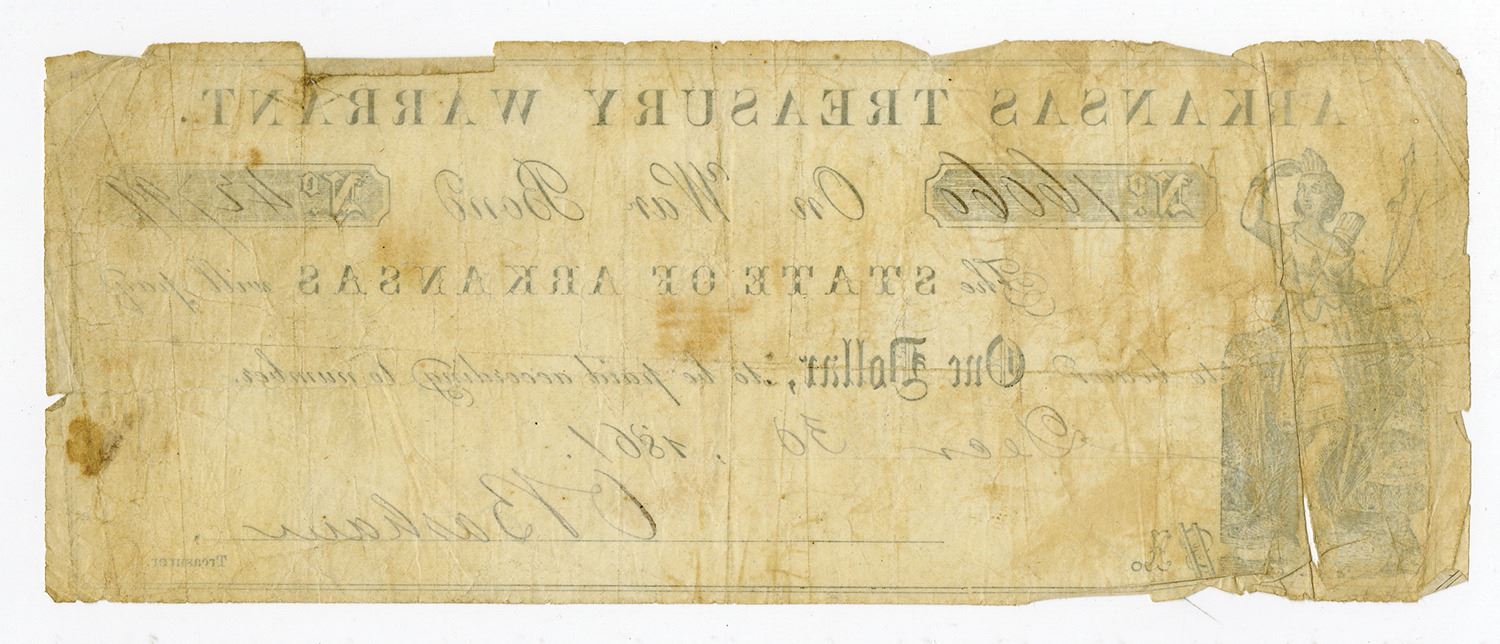 ARKANSAS TREASURY WARRANT.
No. 16060 On War Bond No.
The STATE OF ARKANSAS will pay
to bearer One Dollar, to be paid according to number.
Decr 30, 1861.
Treasurer